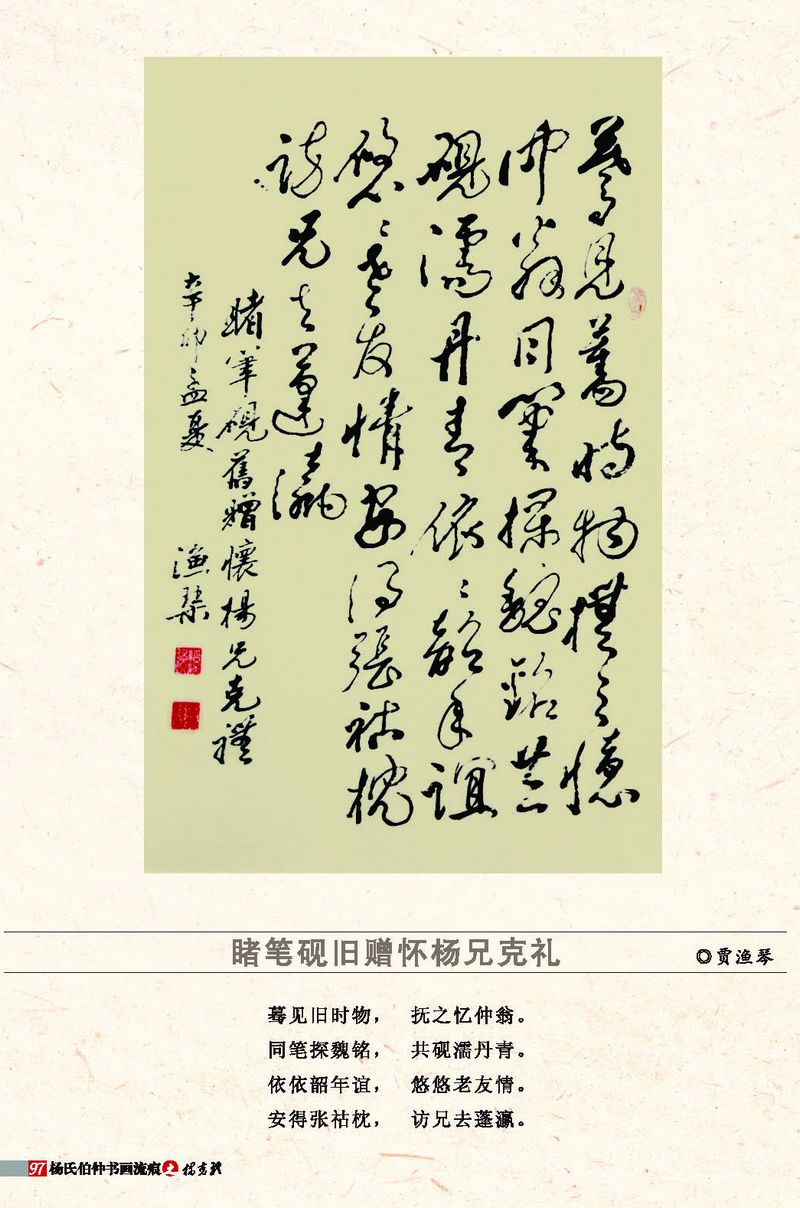 蓦見舊時物撫之憶
仲翁同筆探魏銘共
硯濡丹青依〻韶年誼
悠〻老友情安得張祜枕
訪兄去蓬瀛
睹筆硯舊贈懷楊兄克禮
辛卯孟夏
渔琴
睹笔砚旧赠怀杨兄克礼
◎贾渔琴
蓦见旧时物，　抚之忆仲翁。
同笔探魏铭，　共砚濡丹青。
依依韶年谊，　悠悠老友情。
安得张祜枕，　访兄去蓬瀛。
97 杨氏伯仲书画流痕之 杨克礼